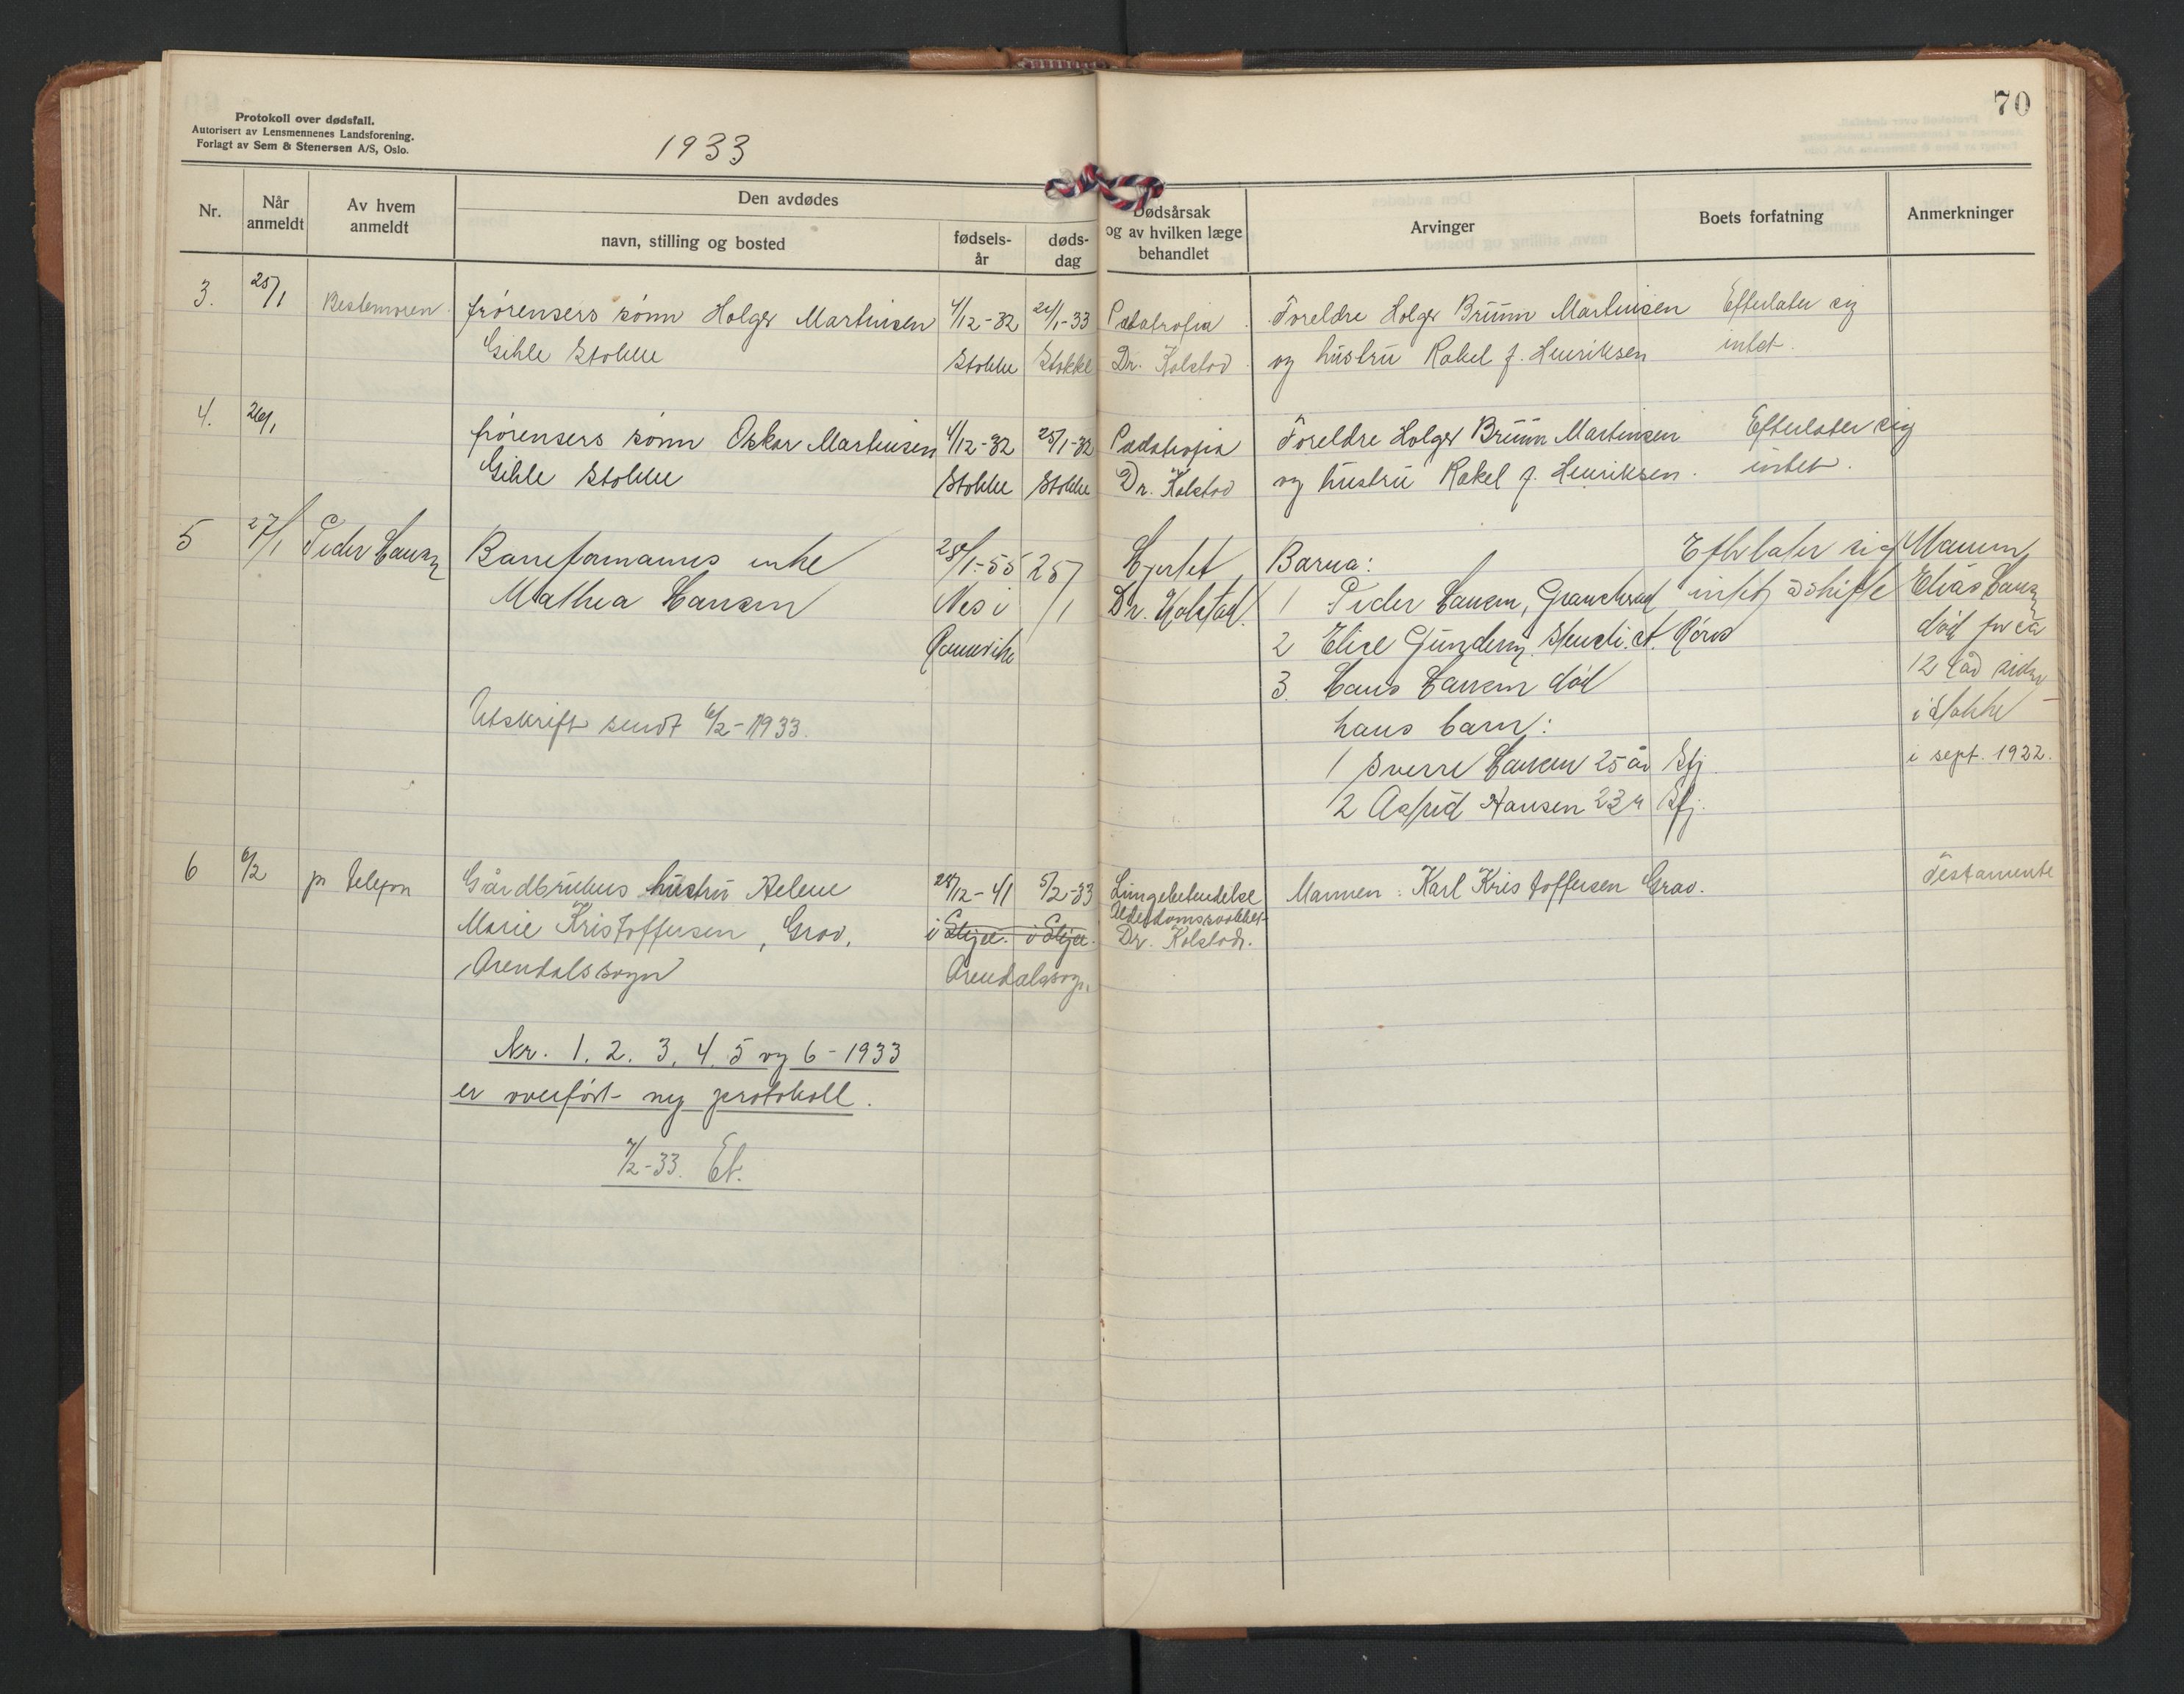 70
Protokoll over dødsfall.
Autorisert av Lensmennenes Landsforening.
Forlagt av Sem & Stenersen A/S, Oslo.
1933
Nr.
Når anmeldt
Av hvem anmeldt
Den avdødes
navn, stilling og bosted
fødselsår
dødsdag
Dødsårsak og av hvilken læge behandlet
Arvinger
Boets forfatning
Anmerkninger
3. 25/1 Bestemoren frørensers sønn Holger Martinsen 4/12-32 24/1-33 Pædatrofia Foreldre Holger Bruun Martinsen Efterlater sig
Gihle Stokke Stokke Stokke Dr. Kolstad og hustru Rakel f. Henriksen intet.
4. 26/1 frørensers sønn Oskar Martinsen 4/12-32 25/1-32 Pædatrofia Foreldre Holger Bruun Martinsen Efterlater sig
Gihle Stokke Stokke Stokke Dr. Kolstad og hustru Rakel f. Henriksen. intet.
5 27/1 Peder Hansen Baneformanns enke 28/1-55 25/1 Hjertet Barna: Efterlater sig Mannen
Mathea Hansen Nes i Dr. Kolstad. 1 Peder Hansen, intet å skifte Elias Hansen
Ramnes 2 Elise Gundersen, st. Rånes død for ca
3. Hans Hansen død 12 år siden
Utskrift sendt 6/2-1933. hans barn: i Stokke
1 Sverre Hansen 25 år Sfj. i sept. 1922.
2 Astrid Hansen 23 " Sfj.
6 6/2 pr telefon Gårdbrukers hustru Helene 28/12-41 5/2-33 Lungebetendelse Mannen: Karl Kristoffersen Grav. Testamente
Alderdomssvakhet
Marie Kristoffersen, Grav, i i Dr. Kolstad.
Arendalssogn Arendalssogn.
Nr. 1. 2. 3. 4. 5 og 6 - 1933
er overført ny protokoll.
7/2-33.